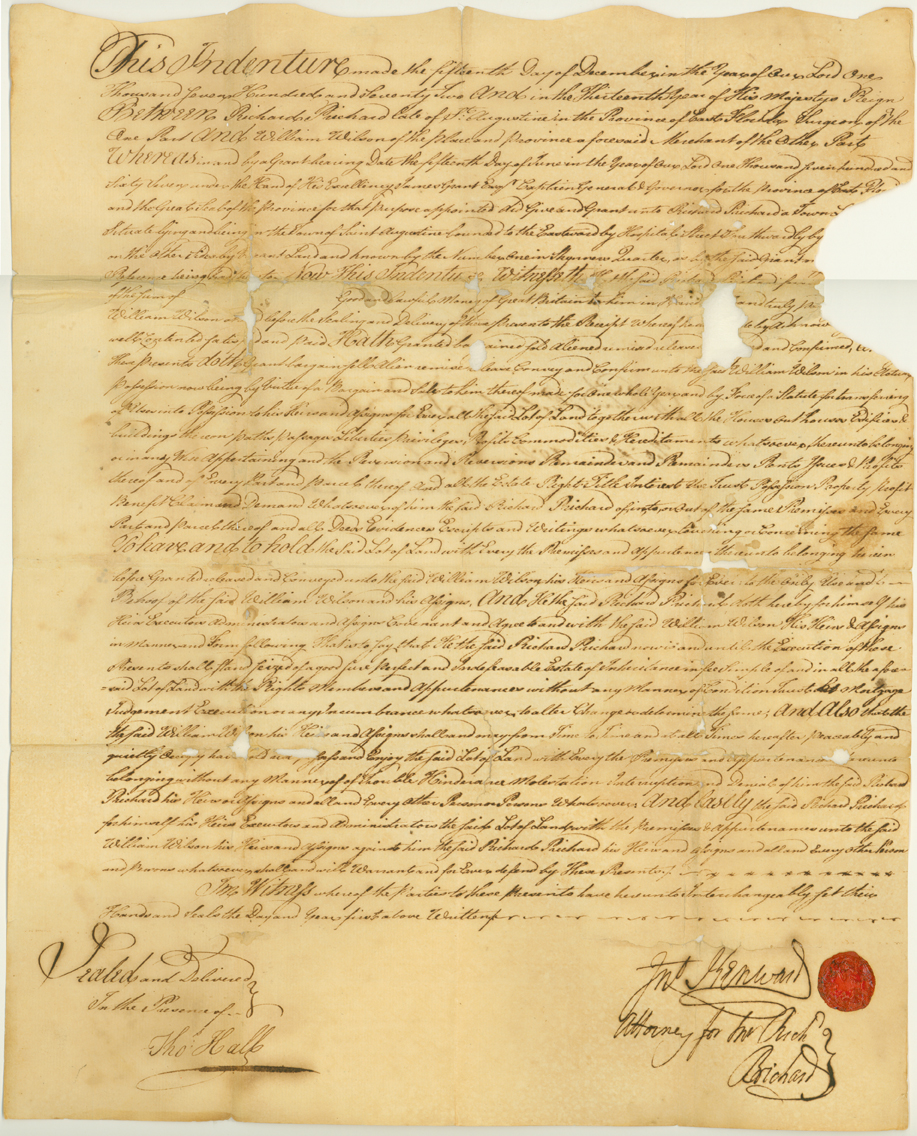 This Indenture made the fifteenth Day of December in the Year of Our Lord One
Thousand Seven Hundred and Seventy Two And in the Thirteenth Year of His Majestys Reign
Between Richard Prichard Late of St. Augustine in the Province of East Florida Surgeon of the
One Part And William Wilson of the Place and Province aforesaid Merchant of the Other Part
Whereas in and by a Grant bearing Date the fifteenth Day of June in the Year of Our Lord One Thousand Seven hundred and
Sixty Seven under the Hand of His Excellency James Grant Esqr. Captain General & Governor of the Province of East
and the Great Seal of the Province for that purpose appointed did Give and Grant unto Richard Prichard a Town
Situate lying and being in the Town of Saint Augustine bounded to the Eastward by Hospital Street Southwardly by
on the Other Sides by Land and known by the Number One in Quarter, or by the said Grant
Reference being had Now This Indenture Witnesseth that the said Richard Prichard
of the Sum of Good and Lawful Money of Great Britain to him in hand and truly
William Wilson at before the Sealing and Delivery of these Presents the Receipt whereof
well Contented satis and paid Hath Granted bargained sold aliened remised released and Confirmed,
these presents doth Grant bargain sell Alien remise release Convey and Confirm unto the said William Wilson in his Actual
Possession now being by Virtue of a Bargain and Sale to him thereof made for One whole Year and by Force of a Statute for transferring
of Uses into Possession to his Heirs and Assigns for Ever all the said Lot of Land together with all the Houses Out houses Edifices &
buildings thereon paths passages Liberties Privileges, Profits Commodities & Hereditaments whatsoever thereunto belonging
or in any Wise Appertaining and the Reversion and Reversions Remainder and Remainders Rents Issues & Profits
thereof and of Every Part and Parcel thereof And all the Estate Right Title Interest Use Trust Possession Property profit
Benefit Claim and Demand Whatsoever of him the said Richard Prichard of in to or Out of the same Premises and Every
Part and Parcel thereof and all Deeds Evidences Escripts and Writings whatsoever touching or Concerning the same
To have and to hold the said Lot of Land with Every the Premises and Appurtenances thereunto belonging herein
before Granted released and Conveyed unto the said William Wilson his Heirs and Assigns for Ever to the Only Use and
Behoof of the said William Wilson and his Assigns. And He the said Richard Prichard doth hereby for himself his
Heirs Executors Administrators and Assigns Covenant and Agree to and with the said William Wilson His Heirs & Assigns
in Manner and Form following That is to say that He the said Richard Prichard now is and until the Execution of these
Presents shall stand seized of a good sure perfect and Indefeasable Estate of Inheritance in fee Simple of and in all the afore-
said Lot of Land with the Rights Members and Appurtenances without any Manner of Condition Trust Mortgage
Judgement Execution or any Incumbrance whatsoever to alter Change or determine the same; And Also that the
the said William Wilson his Heirs and Assigns shall and may from Time to Time and at all Times hereafter Peaceably and
quietly Occupy have hold use possess and Enjoy the said Lot of Land with Every the Premises and Appurtenances thereunto
belonging without any Manner of Trouble Hinderance Molestation Interruption and Denial of him the said Richard
Prichard his Heirs or Assigns and all and Every other Person or Persons Whatsoever, And Lastly the said Richard Prichard
for himself his Heirs Executors and Administrators the said Lot of Land with the Premises & Appurtenances unto the said
William Wilson his Heirs and Assigns against him the said Richard Prichard his Heirs and Assigns and all and Every other Person
and Persons whatsoever shall and will Warrant and for Ever defend by These Presents.
In Witness whereof the Parties to these presents have hereunto Interchangeably set their
Hands and Seals the Day and Year first above Written
Sealed and Delivered
In the Presence of
Thos. Hall
Jno. Kenward
Attorney for Richd
Prichard